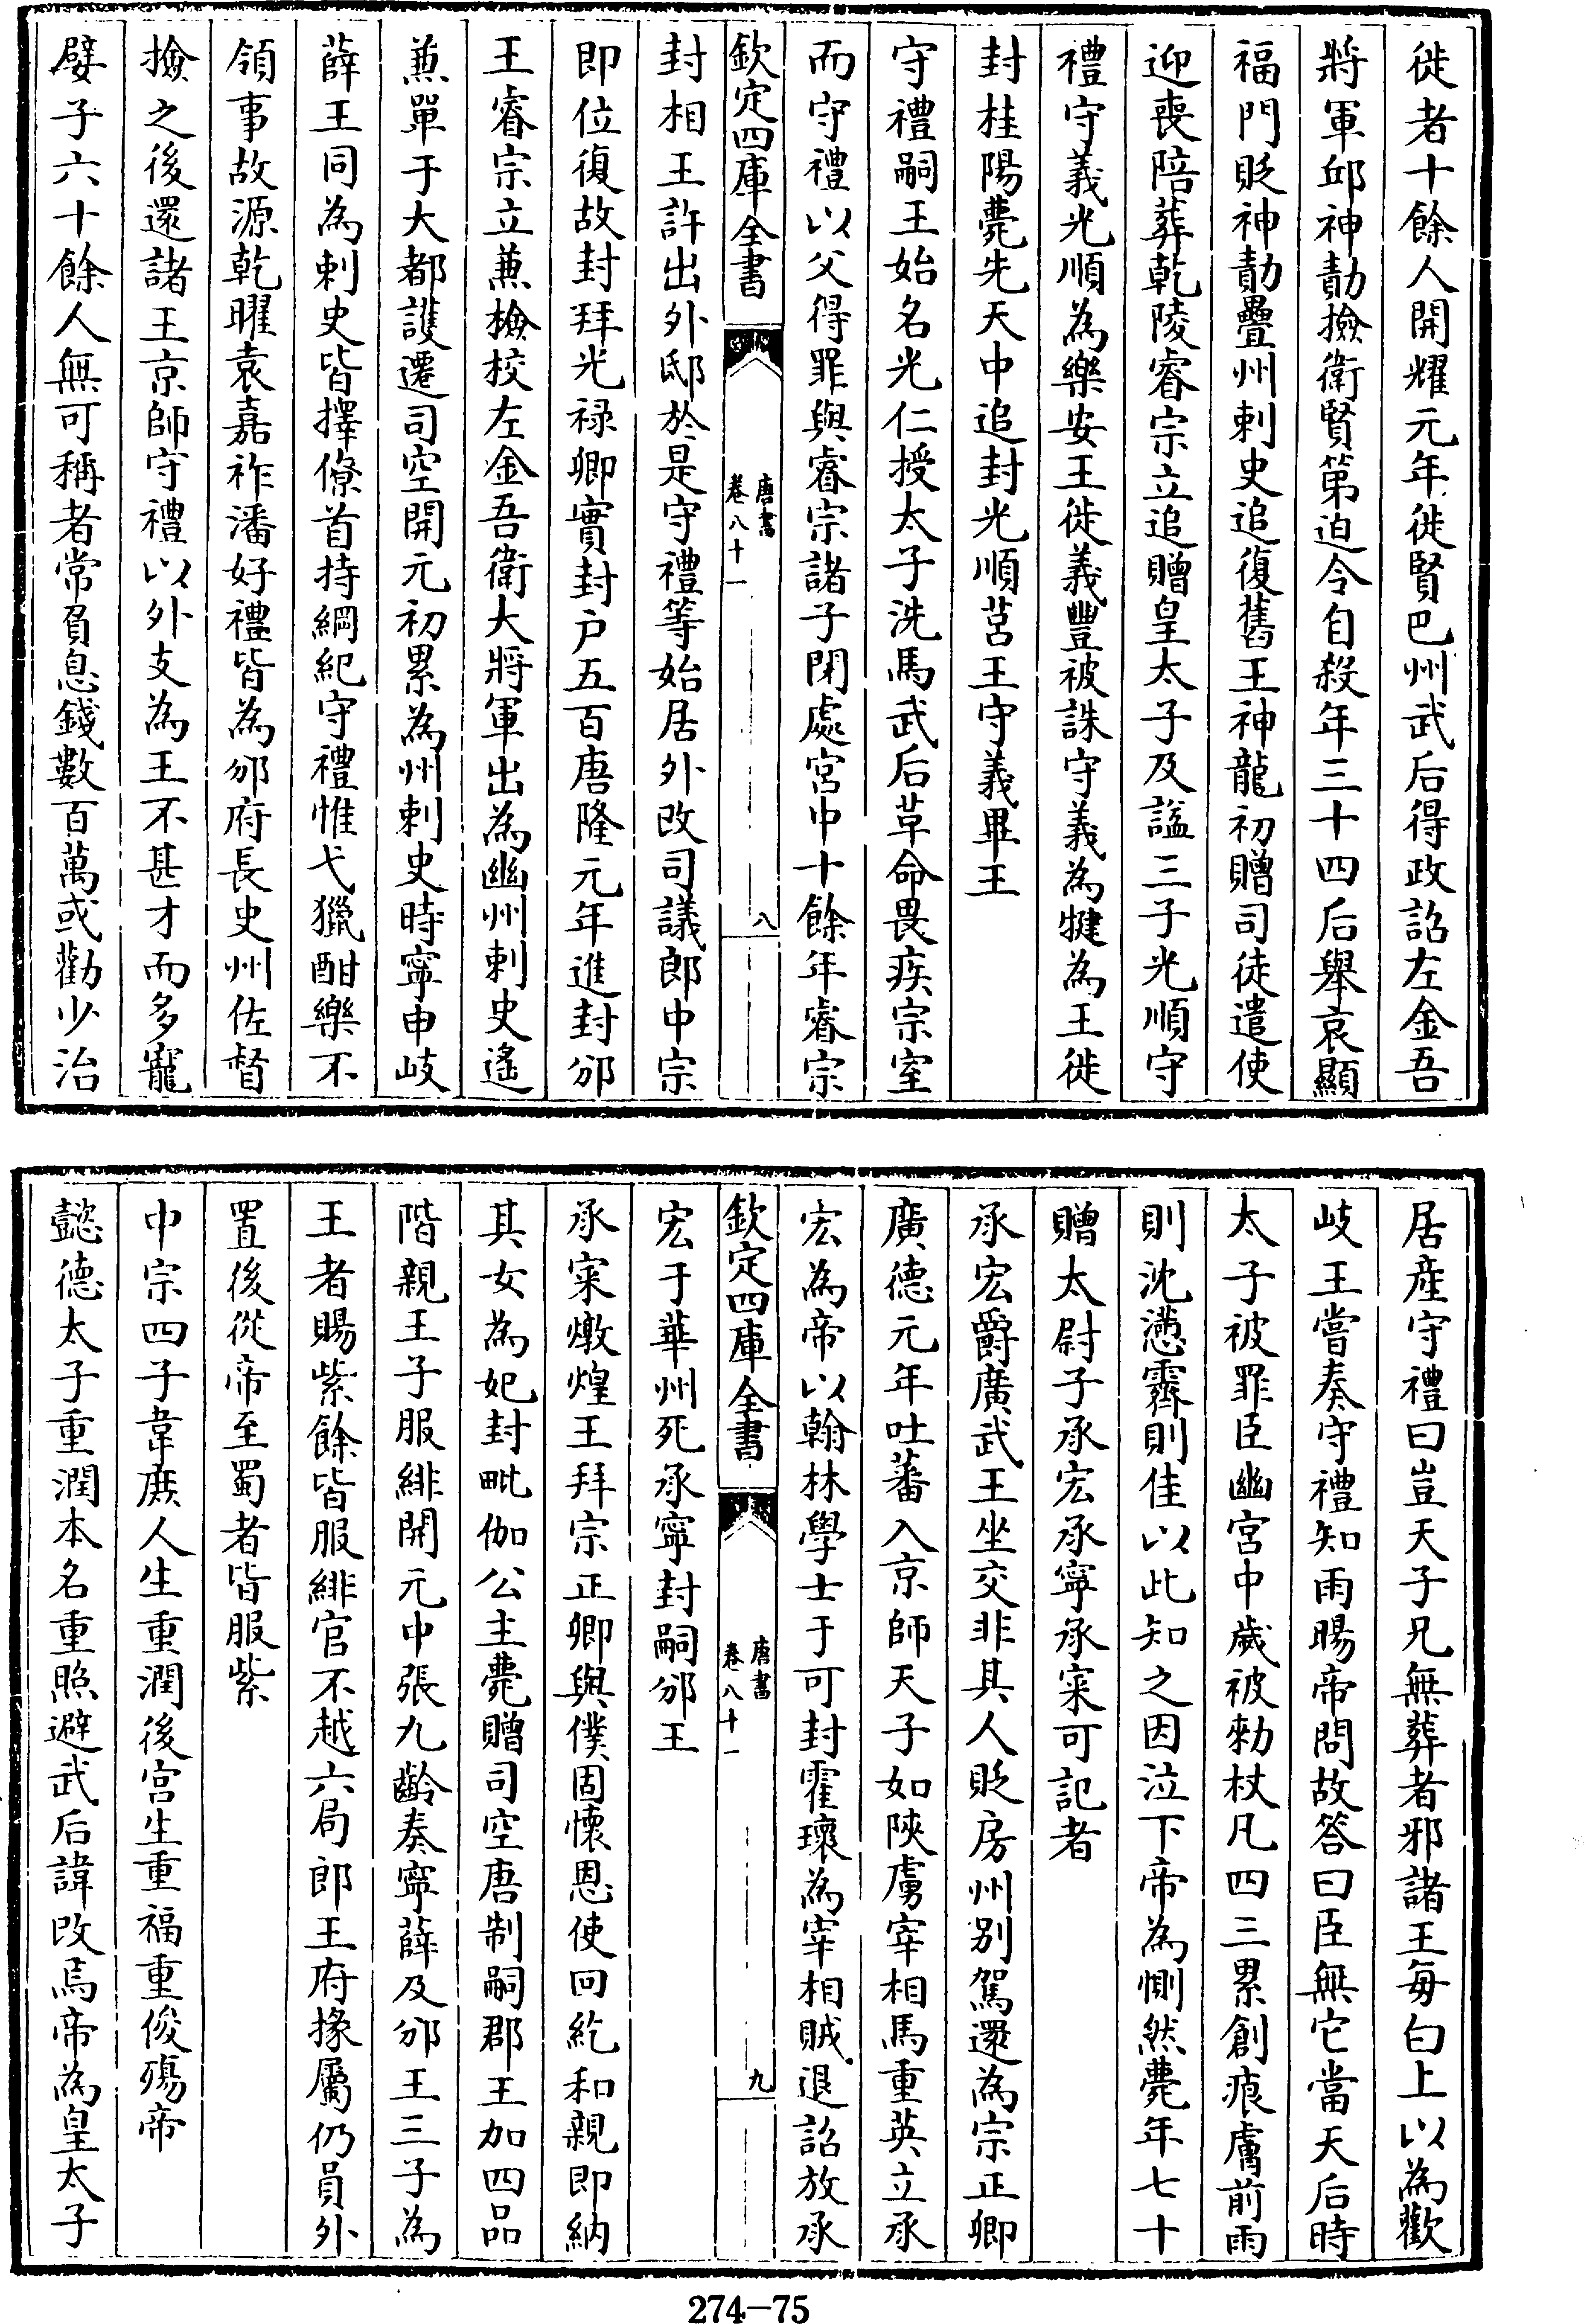 徙者十餘人開耀元年徙賢巴州武后得政詔左金吾
將軍邱神勣撿衛賢第迫令自殺年三十四后舉哀顯
福門貶神勣疊州刺史追復舊王神龍初贈司徒遣使
迎喪陪葬乾陵睿宗立追贈皇太子及諡三子光順守
禮守義光順為樂安王徙義豐被誅守義為犍為王徙
封桂陽薨先天中追封光順莒王守義畢王
守禮嗣王始名光仁授太子洗馬武后革命畏疾宗室
而守禮以父得罪與睿宗諸子閉處宮中十餘年睿宗
欽定四庫全書
唐書
卷八十一
八
封相王許出外邸於是守禮等始居外改司議郎中宗
即位復故封拜光祿卿實封户五百唐隆元年進封邠
王睿宗立兼檢校左金吾衛大將軍出為幽州刺史遙
兼單于大都護遷司空開元初累為州刺史時寧申岐
薛王同為刺史皆擇僚首持綱紀守禮惟弋獵酣樂不
領事故源乾曜袁嘉祚潘好禮皆為邠府長史州佐督
撿之後還諸王京師守禮以外支為王不甚才而多寵
嬖子六十餘人無可稱者常負息錢數百萬或勸少治
居産守禮曰豈天子兄無葬者邪諸王每白上以為歡
岐王嘗奏守禮知雨暘帝問故答曰臣無它當天后時
太子被罪臣幽宮中歲被勅杖凡四三累創痕膚前雨
則沈懣霽則佳以此知之因泣下帝為惻然薨年七十
贈太尉子承宏承寧承寀可記者
承宏爵廣武王坐交非其人貶房州别駕還為宗正卿
廣德元年吐蕃入京師天子如陜虜宰相馬重英立承
宏為帝以翰林學士于可封霍瓌為宰相賊退詔放承
欽定四庫全書
唐書
卷八十一
九
宏于華州死承寧封嗣邠王
承寀燉煌王拜宗正卿與僕固懷恩使回紇和親即納
其女為妃封毗伽公主薨贈司空唐制嗣郡王加四品
階親王子服緋開元中張九齡奏寧薛及邠王三子為
王者賜紫餘皆服緋官不越六局郎王府掾屬仍員外
置後從帝至蜀者皆服紫
中宗四子韋庶人生重潤後宮生重福重俊殤帝
懿德太子重潤本名重照避武后諱改焉帝為皇太子
274-75